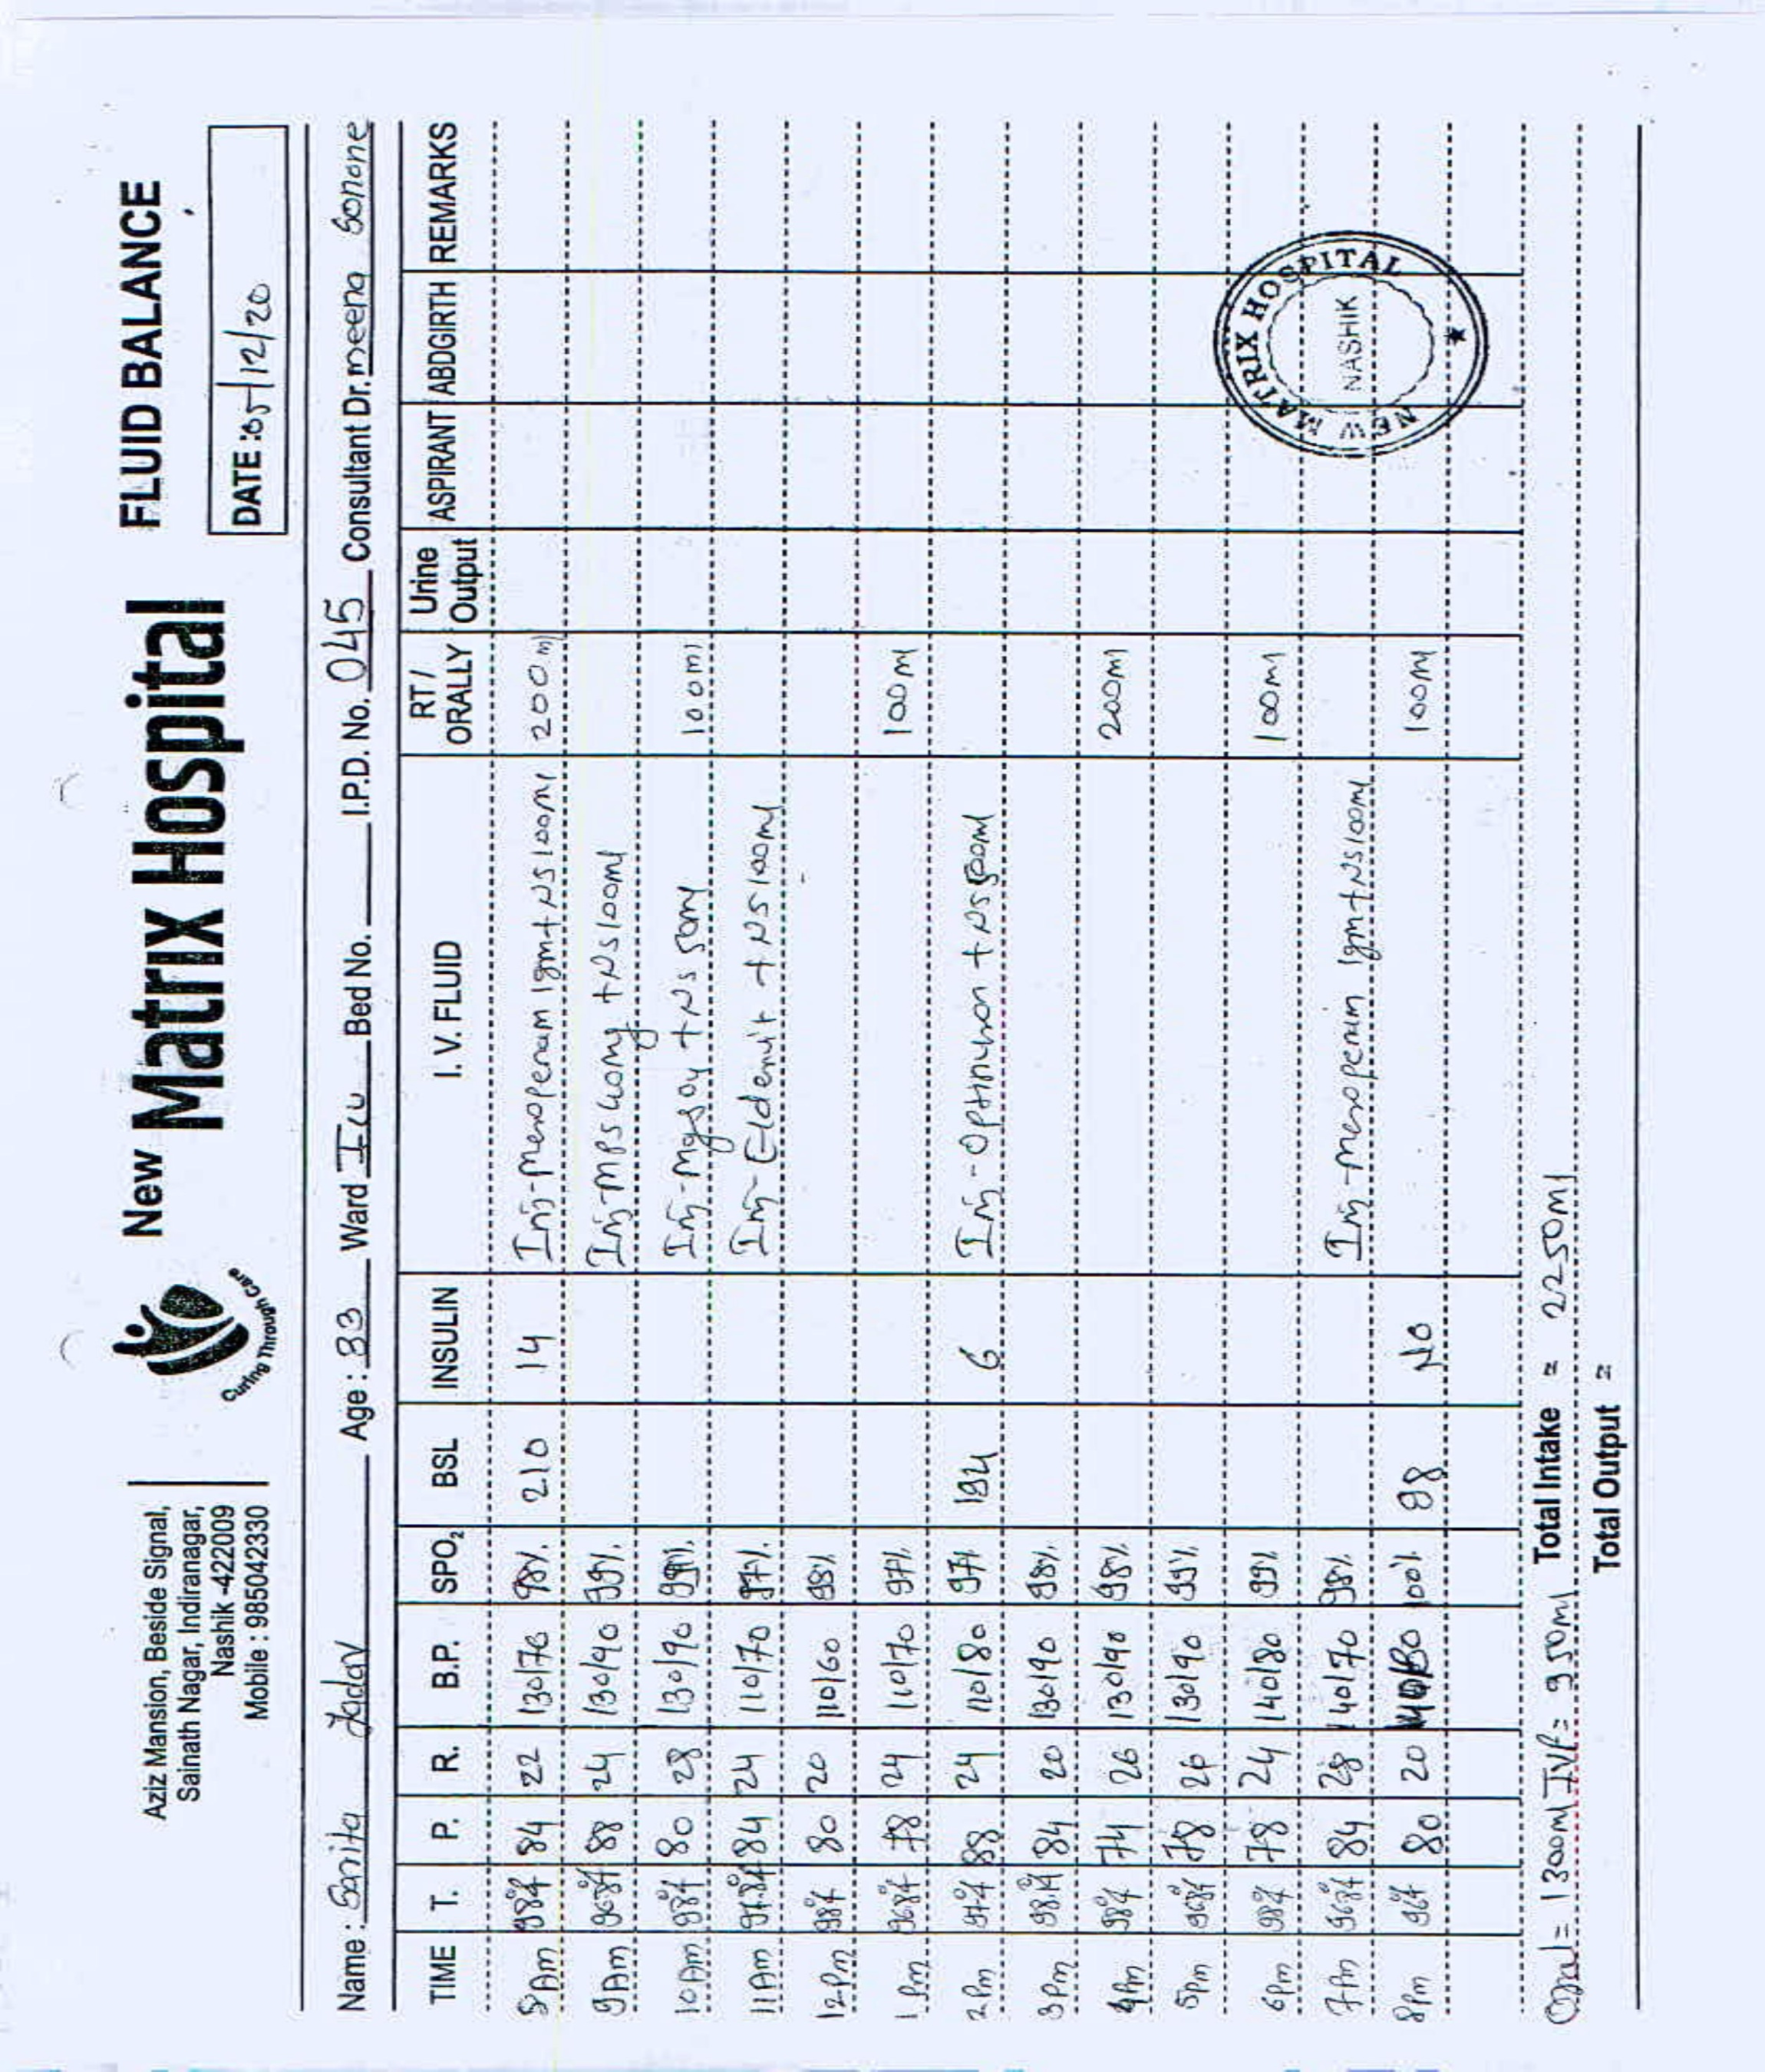 Aziz Mansion, Beside Signal,
Sainath Nagar, Indiranagar,
Nashik -422009
Mobile : 985042330
Curing Through Care
New Matrix Hospital
FLUID BALANCE
DATE : 05/12/20
Name : Sarita Jadav Age : 33 Ward Icu Bed No. I.P.D. No. 045 Consultant Dr. meena Sonone
TIME T. P. R. B.P. SPO2 BSL INSULIN I. V. FLUID RT / ORALLY Urine Output ASPIRANT ABDGIRTH REMARKS
8Am 98°f 84 22 130/70 98% 210 14 Inj-meropenam 1gm+NS100ml 200ml
9Am 96.8°f 88 24 130/90 99% Inj-MPS 40mg +NS100ml
10Am 98°f 80 28 130/90 99% Inj-Mgso4 +NS 50ml
11Am 97.8°f 84 24 110/70 97% +NS100ml 100ml
12Pm 98°f 80 20 110/60 98%
1Pm 96.8°f 78 24 110/70 97% 100ml
2Pm 97°f 88 24 120/80 97% 194 6 Inj-Optineuron +NS500ml
3Pm 98.1°f 84 20 130/90 98%
4Pm 98°f 74 26 130/90 98% 200ml
5Pm 96.8°f 78 26 130/90 99%
6Pm 98°f 78 24 140/80 99% 100ml
7Pm 96.8°f 84 28 140/70 98% Inj-meropenam 1gm+NS100ml
8Pm 96°f 80 20 100% 98 NO 100ml
NEW MATRIX HOSPITAL
NASHIK
Oral = 1300ml IVF = 950ml Total Intake = 2250ml
Total Output =